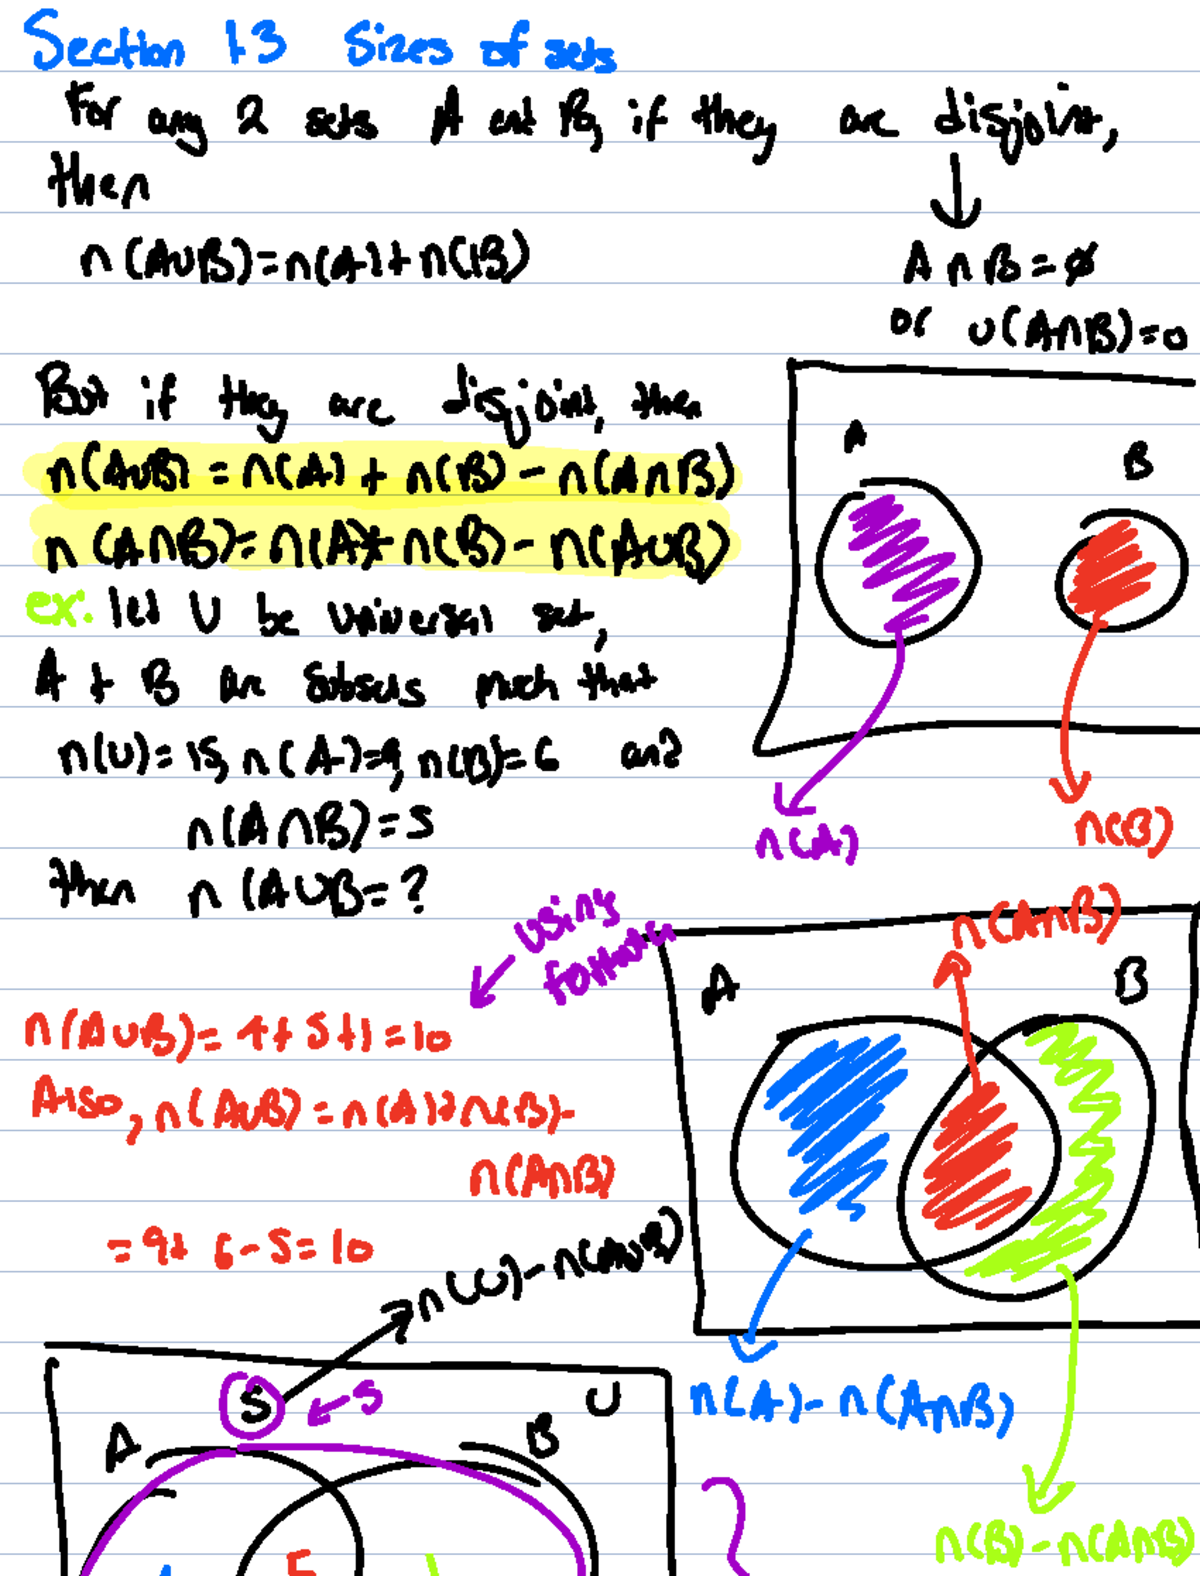 Section 1.3 Sizes of sets
For any 2 sets A and B, if they are disjoint,
then
n(A∪B)=n(A)+n(B)
A ∩ B = ∅
or n(A∩B)=0
But if they are disjoint, then
n(A∪B) = n(A) + n(B) - n(A∩B)
n(A∩B)= n(A)+ n(B) - n(A∪B)
A
B
ex: let U be universal set,
A + B are subsets such that
n(U)= 15, n(A)=9, n(B)=6 and
n(A∩B)=5
then n(A∪B=?
n(A)
n(B)
using formula
n(A∩B)
A
B
n(A∪B)= 4+ 5+1=10
Also, n(A∪B)=n(A)+n(B)-
n(A∩B)
= 9+ 6-5=10
n(U)-n(A∪B)
n(A)- n(A∩B)
5
←5
U
A
B
n(B)-n(A∩B)
5
1